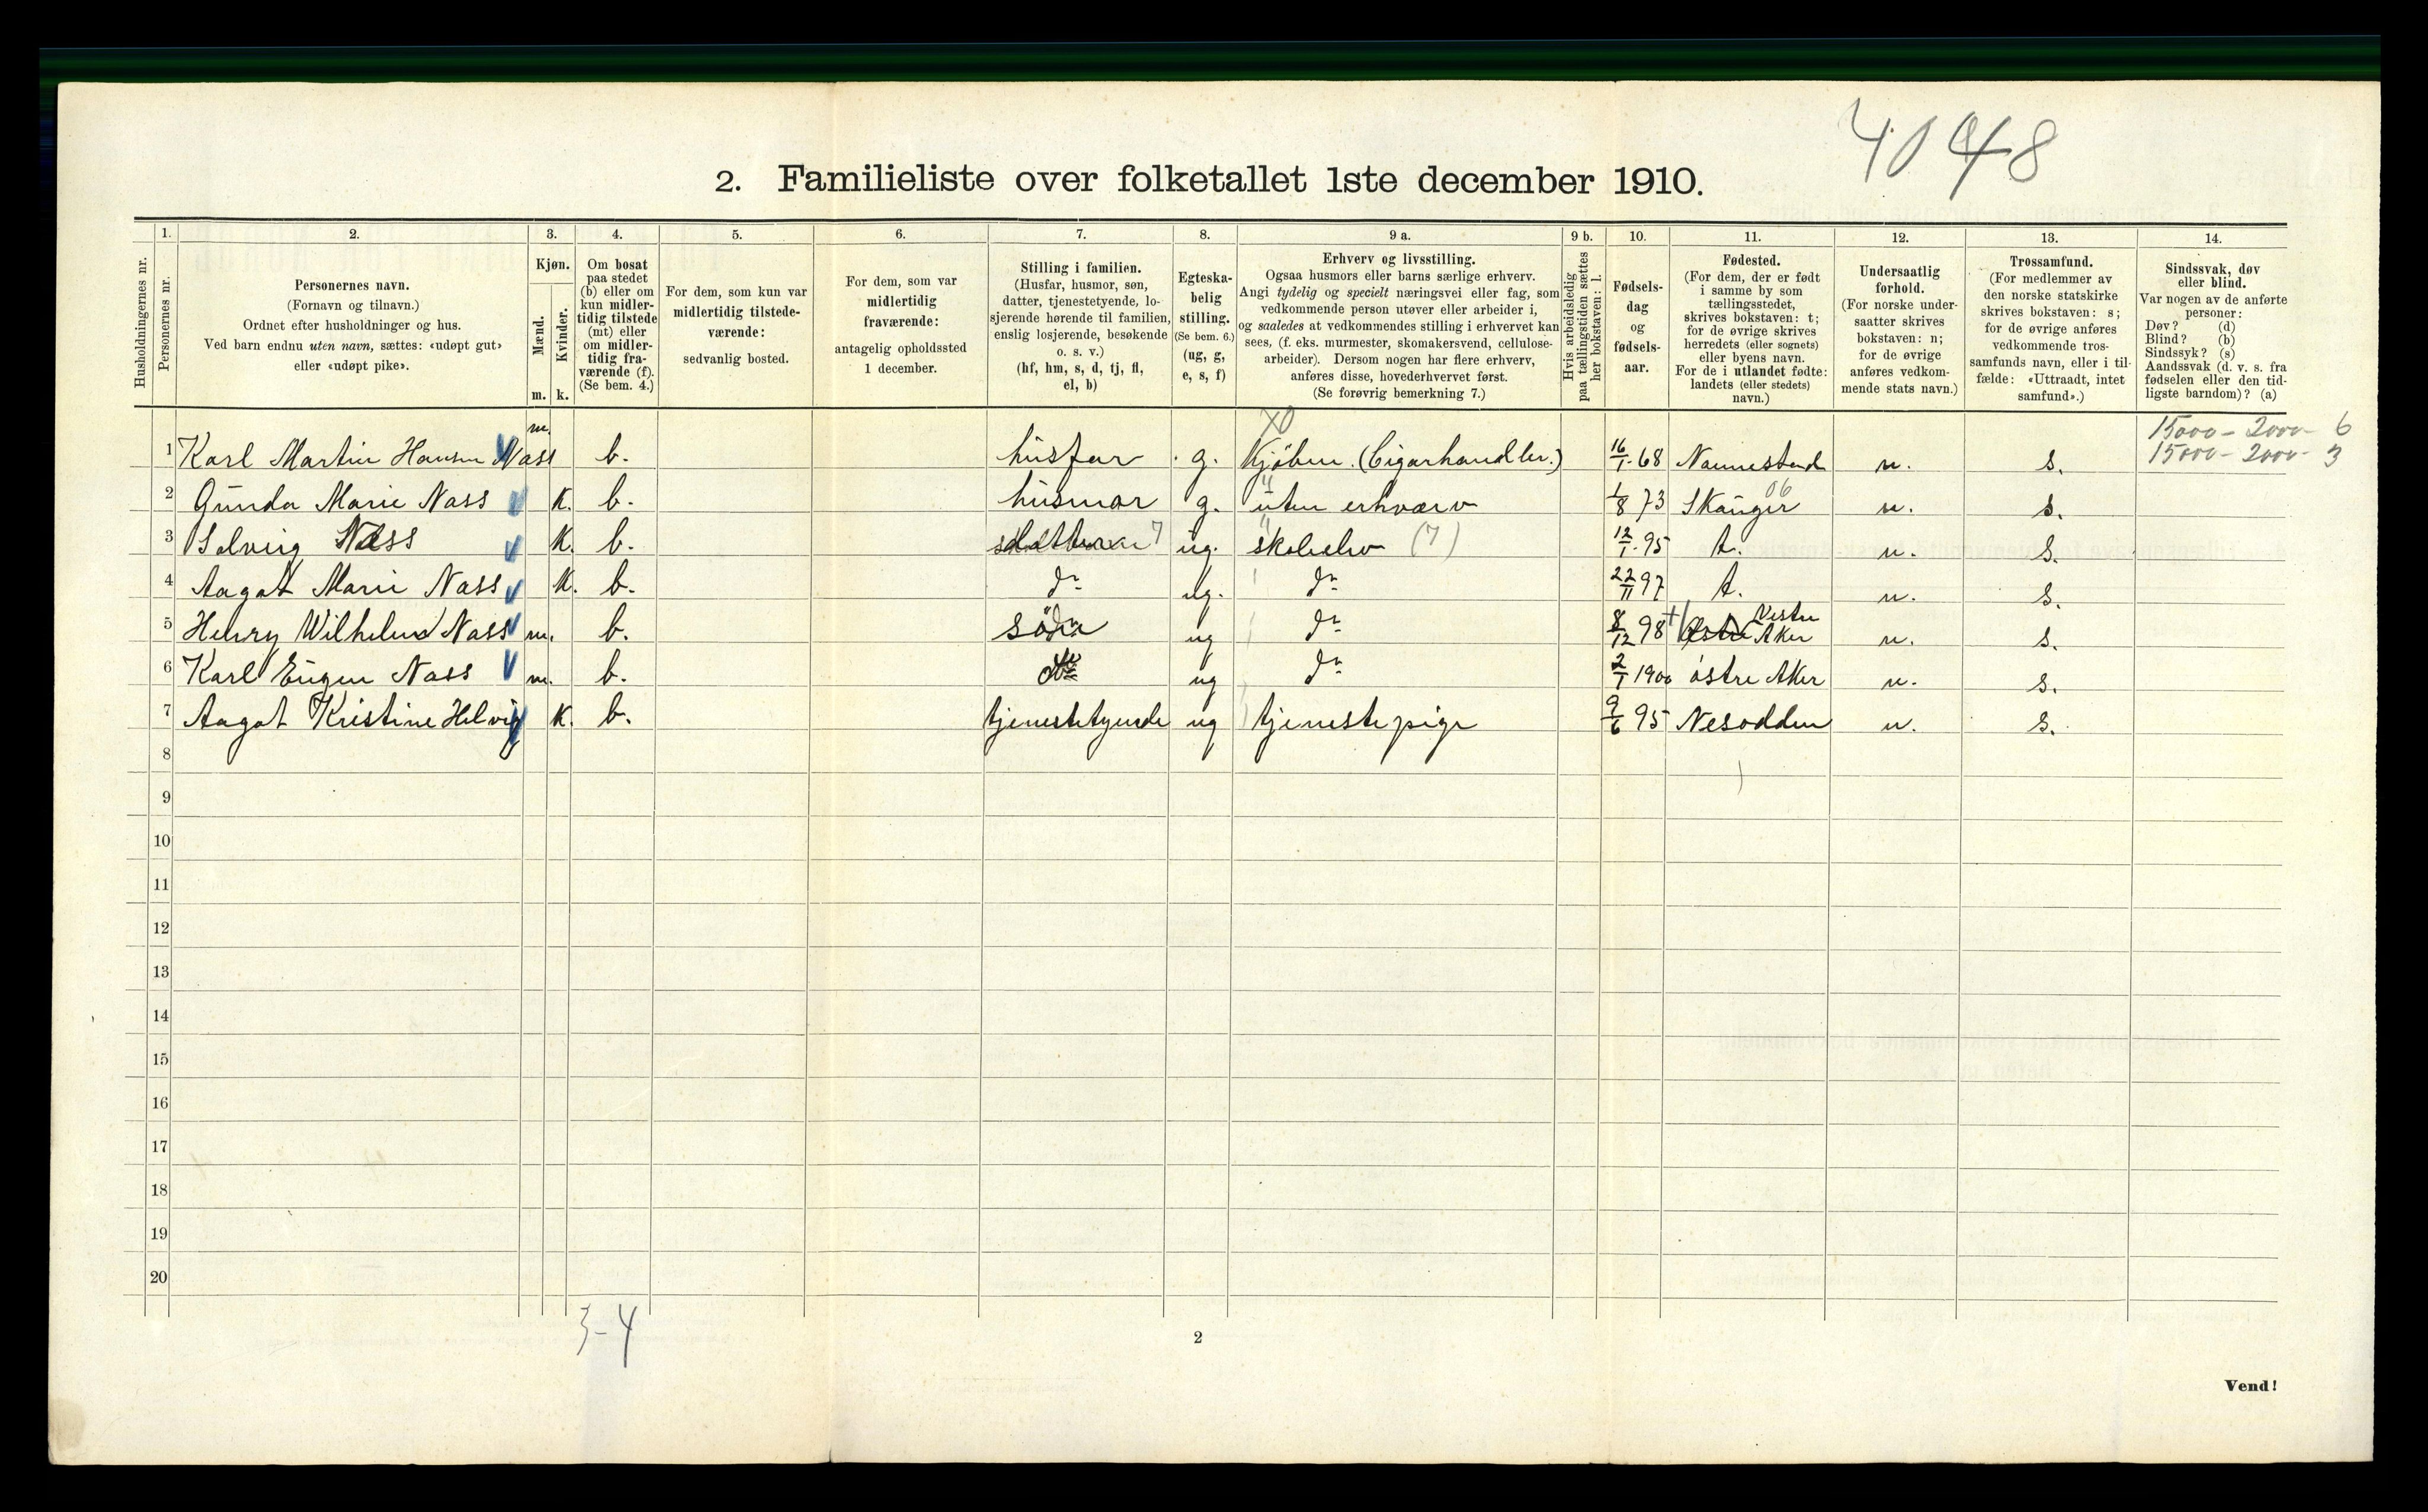 4048
2. Familieliste over folketallet 1ste december 1910.
Husholdningernes nr.
1. Personernes nr.
2. Personernes navn.
(Fornavn og tilnavn.)
Ordnet efter husholdninger og hus.
Ved barn endnu uten navn, sættes: «udøpt gut»
eller «udøpt pike».
3. Kjøn.
Mænd. Kvinder.
m. k.
4. Om bosat
paa stedet
(b) eller om
kun midler-
tidig tilstede
(mt) eller
om midler-
tidig fra-
værende (f).
(Se bem. 4.)
5. For dem, som kun var
midlertidig tilstede-
værende:
sedvanlig bosted.
6. For dem, som var
midlertidig
fraværende:
antagelig opholdssted
1 december.
7. Stilling i familien.
(Husfar, husmor, søn,
datter, tjenestetyende, lo-
sjerende hørende til familien,
enslig losjerende, besøkende
o. s. v.)
(hf, hm, s, d, tj, fl,
el, b)
8. Egteska-
belig
stilling.
(Se bem. 6.)
(ug, g,
e, s, f)
9 a. Erhverv og livsstilling.
Ogsaa husmors eller barns særlige erhverv.
Angi tydelig og specielt næringsvei eller fag, som
vedkommende person utøver eller arbeider i,
og saaledes at vedkommendes stilling i erhvervet kan
sees, (f. eks. murmester, skomakersvend, cellulose-
arbeider). Dersom nogen har flere erhverv,
anføres disse, hovederhvervet først.
(Se forøvrig bemerkning 7.)
9 b. Hvis arbeidsledig
paa tællingstiden sættes
her bokstaven: l.
10. Fødsels-
dag
og
fødsels-
aar.
11. Fødested.
(For dem, der er født
i samme by som
tællingsstedet,
skrives bokstaven: t;
for de øvrige skrives
herredets (eller sognets)
eller byens navn.
For de i utlandet fødte:
landets (eller stedets)
navn.)
12. Undersaatlig
forhold.
(For norske under-
saatter skrives
bokstaven: n;
for de øvrige
anføres vedkom-
mende stats navn.)
13. Trossamfund.
(For medlemmer av
den norske statskirke
skrives bokstaven: s;
for de øvrige anføres
vedkommende tros-
samfunds navn, eller i til-
fælde: «Uttraadt, intet
samfund».)
14. Sindssvak, døv
eller blind.
Var nogen av de anførte
personer:
Døv? (d)
Blind? (b)
Sindssyk? (s)
Aandssvak (d. v. s. fra
fødselen eller den tid-
ligste barndom)? (a)
15000 - 2000 - 6
15000 - 2000 - 3
1 Karl Martin Hansen Nass m. b. husfar g. Kjøbm. (Cigarhandler.) 16/1 68 Nannestad n. s.
2 Gunda Marie Nass k. b. husmor g. uten erhverv 1/8 73 Skånger n. s.
3 Solveig Nass k. b. ug. skoleelev (7) 12/1 95 t. n. s.
4 Aagot Marie Nass k. b. do ug. do 22/11 97 t. n. s.
5 Henry Wilhelm Nass m. b. søn ug do 8/12 98 Vestre Aker n. s.
6 Karl Eugen Nass m. b. do ug do 2/1 1900 østre Aker n. s.
7 Aagot Kristine Helvig k. b. tjenestetyende ug tjenestepige 9/6 95 Nesodden n. s.
8
9
10
11
12
13
14
15
16
17
18
19
20
3-4
2
Vend!